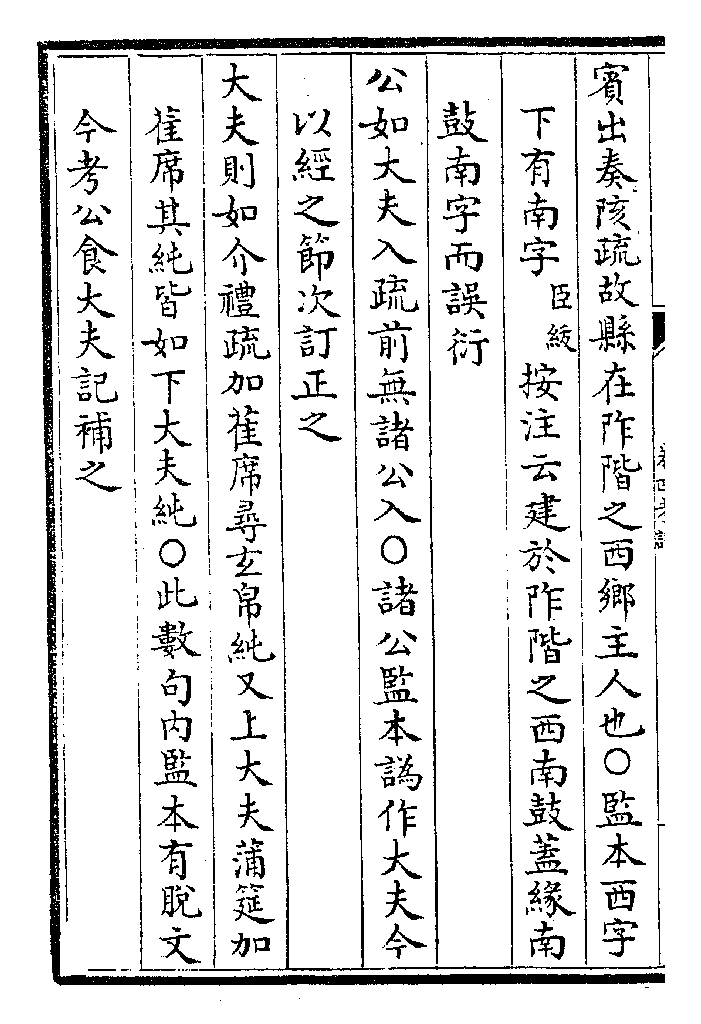 賓出奏陔疏故縣在阼階之西鄉主人也○監本西字
下有南字臣紱按注云建於阼階之西南鼓蓋緣南
鼓南字而誤衍
公如大夫入疏前無諸公入○諸公監本譌作大夫今
以經之節次訂正之
大夫則如介禮疏加萑席尋玄帛純又上大夫蒲筵加
萑席其純皆如下大夫純○此數句內監本有脫文
今考公食大夫記補之